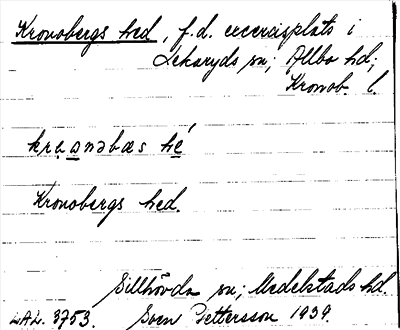 Kronobergs hed, f.d. excercisplats i
Lekaryds sn; Allbo hd;
Kronob. l.
krɷanəbæs hé
Kronobergs hed.
Sillhövda sn; Medelstads hd.
LAL. 3753. Sven Pettersson 1939.